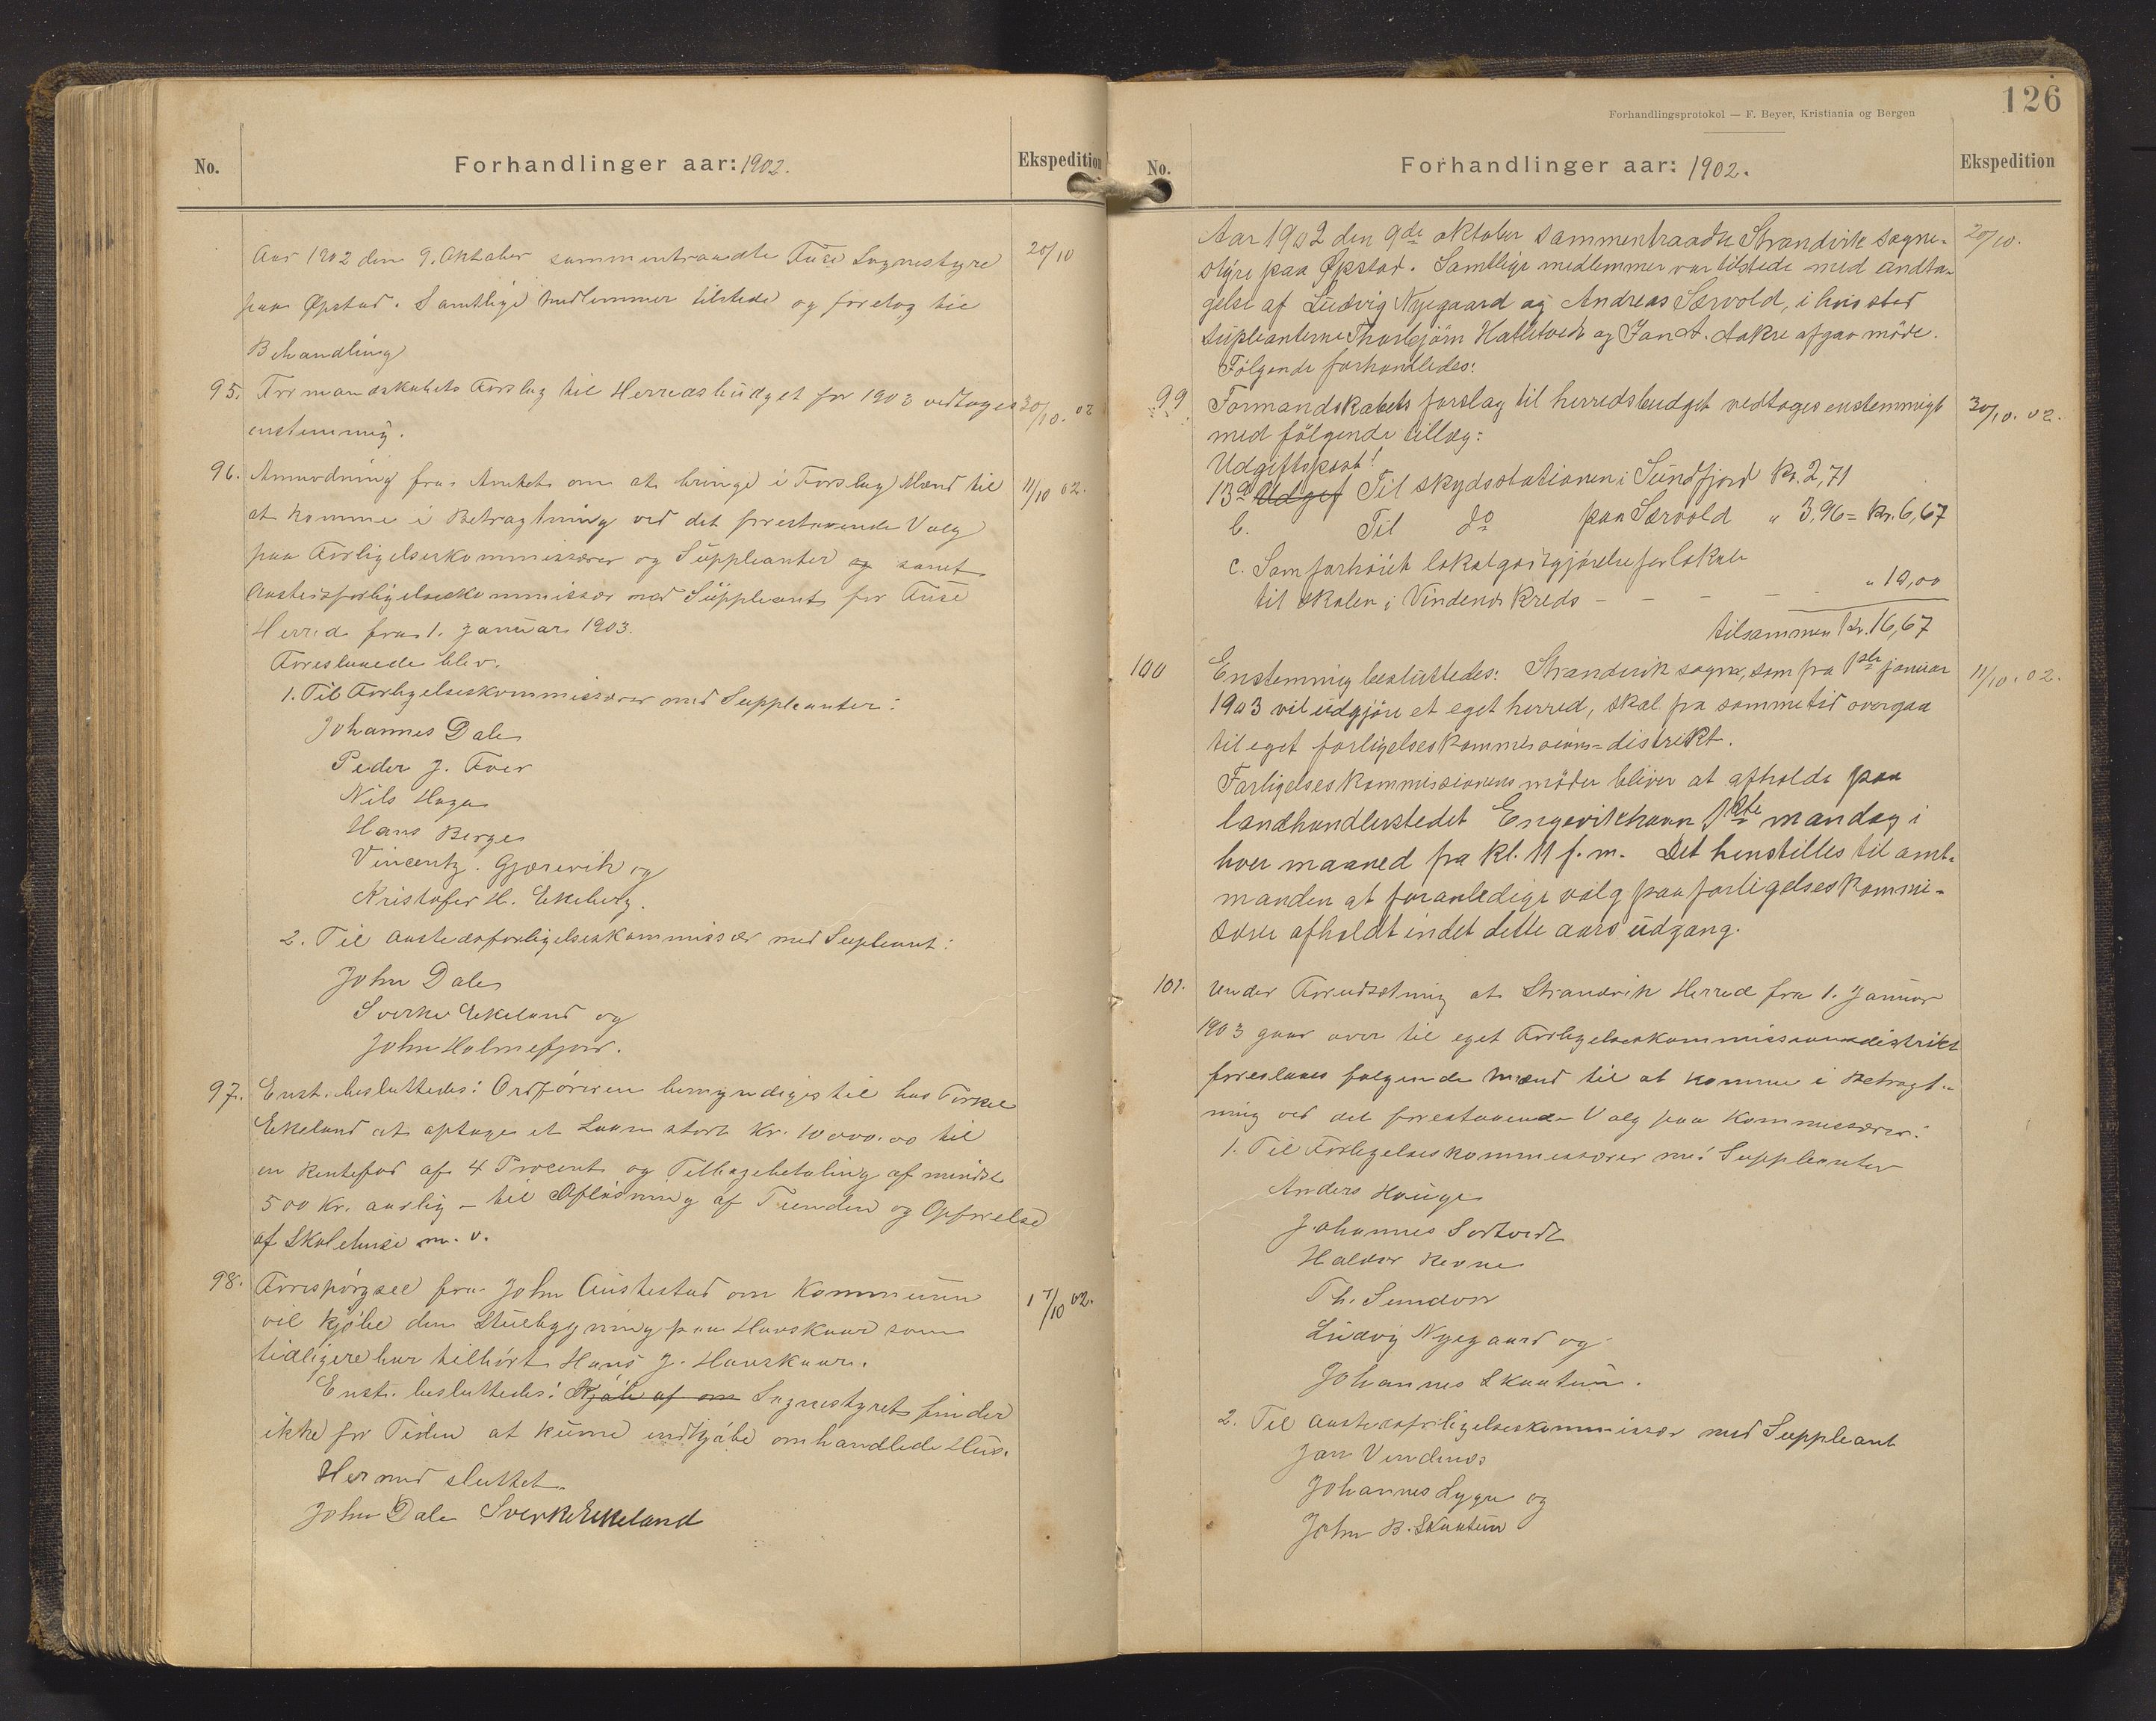 No.
Forhandlinger aar: 1902.
Ekspedition
Aar 1902 den 9. Oktober sammentraadte Fuse Sognestyre
20/10
paa Øpstad. Samtlige Medlemmer tilstede og foretog til
Behandling
95. Formandskabets Forslag til Herredsbudget for 1903 vedtoges
30/10. 02
enstemmig.
96. Anmodning fra Amtet om at bringe i Forslag Mænd til
11/10 02.
at komme i Betragtning ved det forestaaende Valg
paa Forligelseskommissærer og Suppleanter og samt
Austedsforligelseskommissær med Suppleant for Fuse
Herred fra 1. Januar 1903.
Foreslaaede blev.
1. Til Forligelseskommissærer med Suppleanter:
Johannes Dale
Peder J.
Nils Haga
Hans Berge
Vincentz. Gjærevik og
Kristofer H. Ekeberg.
2. Til Austedsforligelseskommissær med Supleant:
John Dale
Sverke Ekeland og
John Holmefjord.
97. Enst. besluttedes: Ordføreren bemyndiges til hos Torkel
Ekeland at optage et Laan stort Kr. 10000.00 til
en Rentefod af 4 Procent og Tilbagebetaling af mindst
500 Kr. aarlig - til Afløsning af Tienden og Opførelse
af Skolehuse m. v.
98. Forespørgsel fra John Austestad om Kommunen
17/10 02.
vil kjøbe den Stuebygning paa Havskaar som
tidligere har tilhørt Hans J. Havskaar.
Enst. besluttedes: Kjøb af om Sognestyret finder
ikke for Tiden at kunne indkjøbe omhandlede Hus.
Hermed sluttet.
John Dale Sverke Ekeland
126
Forhandlingsprotokol — F. Beyer, Kristiania og Bergen
No.
Forhandlinger aar: 1902.
Ekspedition
Aar 1902 den 9de oktober sammentraadte Strandvik sogne-
20/10.
styre paa Øpstad. Samtlige medlemmer var tilstede med undta-
gelse af Ludvig Nygaard og Andreas Særvold, i hvis sted
supleanterne Thorbjørn Hatletvedt og Jan A. Aakre afgav møde.
Følgende forhandledes:
99 Formandskabets forslag til herredsbudget vedtoges enstemmigt
30/10. 02.
med følgende tillæg:
Udgiftspost!
13 a Udgif Til skydsstationen i Sundfjord Kr. 2,71
b. Til do paa Særvold " 3,96 = Kr. 6,67
c. Som forhøiet lokalgodtgjørelse for lokale
til skolen i Vindenes Kreds - - - - - " 10,00
tilsammen Kr. 16,67
100 Enstemmig besluttedes: Strandvik sogn, som fra 1ste januar
11/10. 02.
1903 vil udgjøre et eget herred, skal fra sammetid overgaa
til eget forligelseskommissions-distrikt.
Forligelseskommissionens møder bliver at afholde paa
landhandlerstedet Engevikhavn 1ste mandag i
hver maaned fra kl. 11 f. m. Det henstilles til amt-
manden at foranledige valg paa forligelseskommi-
særer afholdt indet dette aars udgang.
101. Under Forudsætning at Strandvik Herred fra 1. Januar
1903 gaar over til eget Forligelseskommissionsdistrikt
foreslaaes følgende Mænd til at komme i Betragt-
ning ved det forestaaende Valg paa Kommissærer:
1. Til Forligelseskommissærer med Suppleanter
Anders Hauge
Johannes Sortvedt
Haldor Revne
Th. Sundvor
Ludvig Nygaard og
Johannes Skaatun.
2. Til Austedsforligelseskommissær med Suppleant
Jan Vindenes
Johannes Lygre og
John B. Skaatun